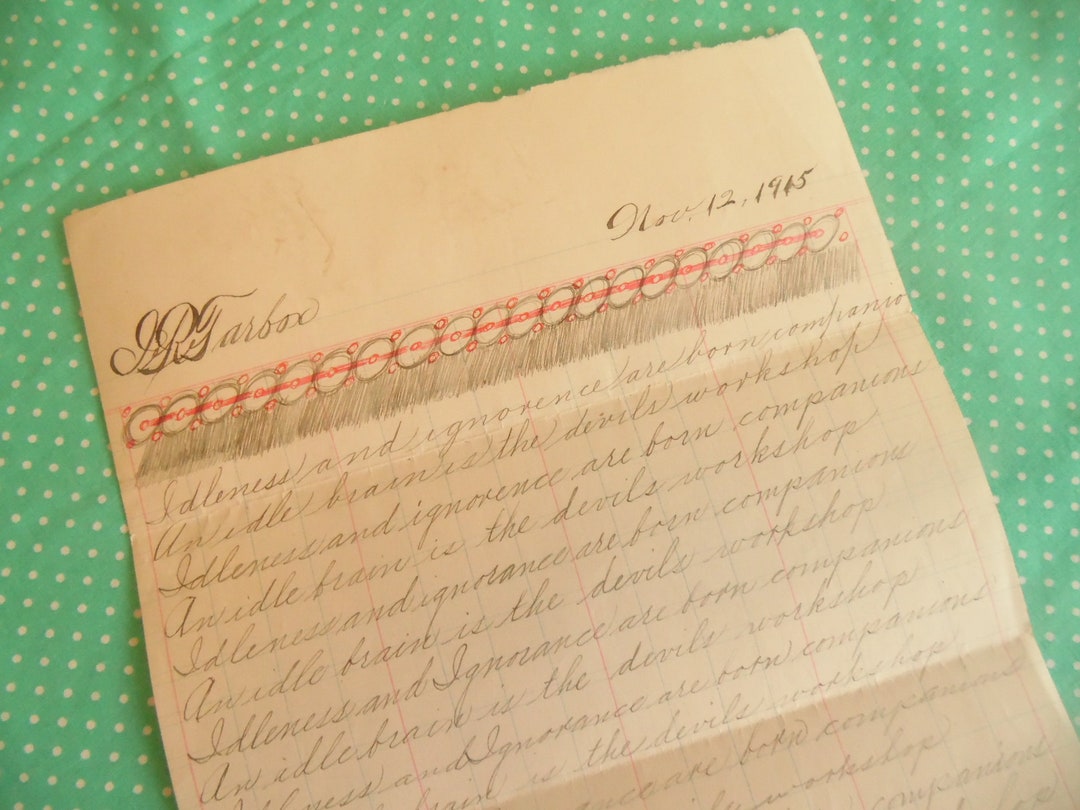 Nov. 12, 1915
J R Tarbox
Idleness and ignorence are born companio
An idle brain is the devils workshop
Idleness and ignorence are born companions
An idle brain is the devils workshop
Idleness and ignorance are born companions
An idle brain is the devils workshop
Idleness and Ignorance are born companions
An idle brain is the devils workshop
Idleness and Ignorance are born companions
brain is the devils workshop
are born companions
workshop
companions